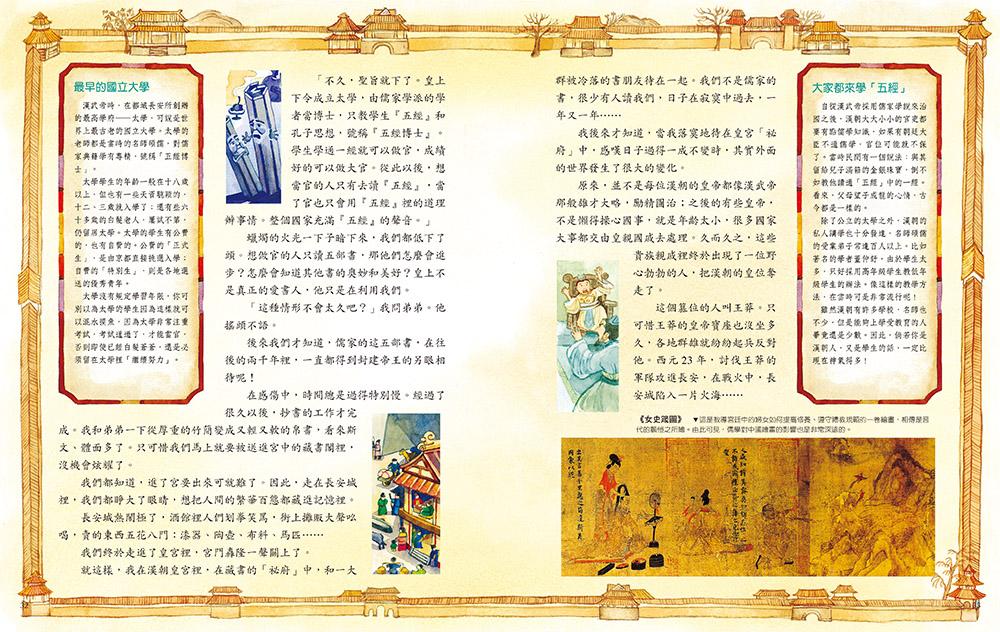 最早的國立大學
漢武帝時，在都城長安所創辦
的最高學府──太學，可說是世
界上最古老的國立大學。太學的
老師都是當時的名師碩儒，對儒
家典籍學有專精，號稱「五經博
士」。
太學學生的年齡一般在十八歲
以上，但也有一些天資聰穎的，
十二、三歲就入學了；還有些六
十多歲的白髮老人，屢試不第，
仍留居太學。太學的學生有公費
的，也有自費的。公費的「正式
生」，是由京都直接挑選入學；
自費的「特別生」，則是各地選
送的優秀青年。
太學沒有規定學習年限，你可
別以為太學的學生因為這樣就可
以混水摸魚，因為太學非常注重
考試，考試通過了，才能當官，
否則即使已經白髮蒼蒼，還是必
須留在太學裡「繼續努力」。
「不久，聖旨就下了。皇上
下令成立太學，由儒家學派的學
者當博士，只教學生『五經』和
孔子思想，號稱『五經博士』。
學生學通一經就可以做官，成績
好的可以做大官。從此以後，想
當官的人只有去讀『五經』，當
了官也只會用『五經』裡的道理
辦事情。整個國家充滿『五經』的聲音。」
蠟燭的火光一下子暗下來，我們都低下了
頭。想做官的人只讀五部書，那他們怎麼會進
步？怎麼會知道其他書的奧妙和美好？皇上不
是真正的愛書人，他只是在利用我們。
「這種情形不會太久吧？」我問弟弟。他
搖頭不語。
後來我們才知道，儒家的這五部書，在往
後的兩千年裡，一直都得到封建帝王的另眼相
待呢！
在感傷中，時間總是過得特別慢。經過了
很久以後，抄書的工作才完
成。我和弟弟一下從厚重的竹簡變成又輕又軟的帛書，看來斯
文、體面多了。只可惜我們馬上就要被送進宮中的藏書閣裡，
沒機會炫耀了。
我們都知道，進了宮要出來可就難了。因此，走在長安城
裡，我們都睜大了眼睛，想把人間的繁華百態都藏進記憶裡。
長安城熱鬧極了，酒館裡人們划拳笑罵，街上攤販大聲吆
喝，賣的東西五花八門：漆器、陶壺、布料、馬匹……
我們終於走進了皇宮裡，宮門轟隆一聲關上了。
就這樣，我在漢朝皇宮裡，在藏書的「祕府」中，和一大
群被冷落的書朋友待在一起。我們不是儒家的
書，很少有人讀我們，日子在寂寞中過去，一
年又一年……
我後來才知道，當我落寞地待在皇宮「祕
府」中，感嘆日子過得一成不變時，其實外面
的世界發生了很大的變化。
原來，並不是每位漢朝的皇帝都像漢武帝
那般雄才大略，勵精圖治；之後的有些皇帝，
不是懶得操心國事，就是年齡太小，很多國家
大事都交由皇親國戚去處理。久而久之，這些
貴族親戚裡終於出現了一位野
心勃勃的人，把漢朝的皇位奪
走了。
這個篡位的人叫王莽。只
可惜王莽的皇帝寶座也沒坐多
久，各地群雄就紛紛起兵反對
他。西元23年，討伐王莽的
軍隊攻進長安，在戰火中，長
安城陷入一片火海……
《女史箴圖》 ▼這是教導宮廷中的婦女如何提高修養、遵守禮教規範的一卷繪畫，相傳是晉
代的顧愷之所繪。由此可見，儒學對中國繪畫的影響也是非常深遠的。
大家都來學「五經」
自從漢武帝採用儒家學說來治
國之後，漢朝大大小小的官吏都
要有點儒學知識，如果有朝廷大
臣不通儒學，官位可能就不保
了。當時民間有一個說法：與其
留給兒子滿籯的金銀珠寶，倒不
如教他讀通「五經」中的一經。
看來，父母望子成龍的心情，古
今都是一樣的。
除了公立的太學之外，漢朝的
私人講學也十分發達，名師碩儒
的受業弟子常達百人以上。比如
著名的學者董仲舒，由於學生太
多，只好採用高年級學生教低年
級學生的辦法。像這樣的教學方
法，在當時可是非常流行呢！
雖然漢朝有許多學校，名師也
不少，但是能夠上學受教育的人
畢竟還是少數。因此，倘若你是
漢朝人，又是學生的話，一定比
現在神氣得多！